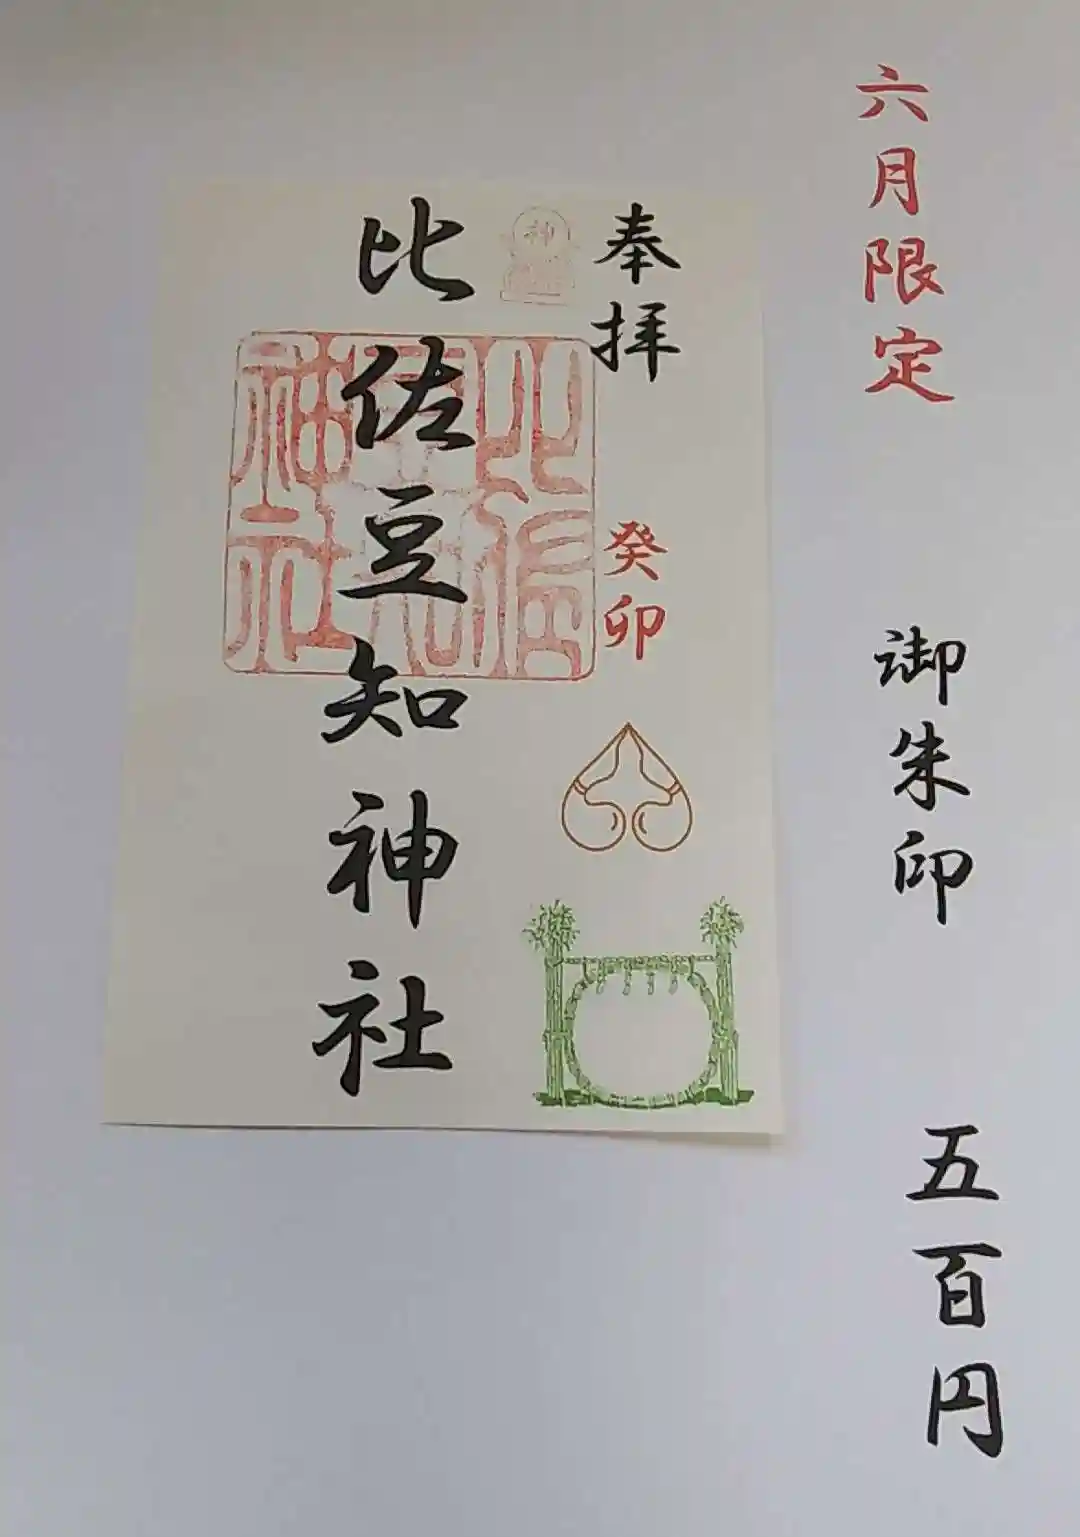 六月限定
御朱印
五百円
奉拝
癸卯
神
比佐豆知神社
比佐豆知神社